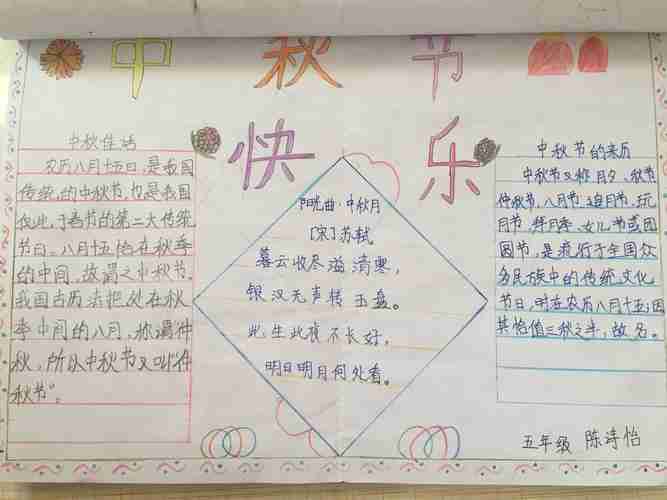 中秋节
快乐
中秋佳话
农历八月十五日，是我国
传统的中秋节，也是我国
仅此于春节的第二大传统
节日。八月十五恰在秋季
的中间，故谓之中秋节。
我国古历法把处在秋
季中间的八月，称谓仲
秋，所以中秋节又叫“仲
秋节”。
阳光曲·中秋月
[宋]苏轼
暮云收尽溢清寒，
银汉无声转玉盘。
此生此夜不长好，
明日明月何处看。
中秋节的来历
中秋节又称月夕、秋节
仲秋节、八月节、追月节、玩
月节、拜月季、女儿节或团
圆节，是流行于全国众
多民族中的传统文化
节日，时在农历八月十五；因
其恰值三秋之半，故名。
五年级 陈诗怡